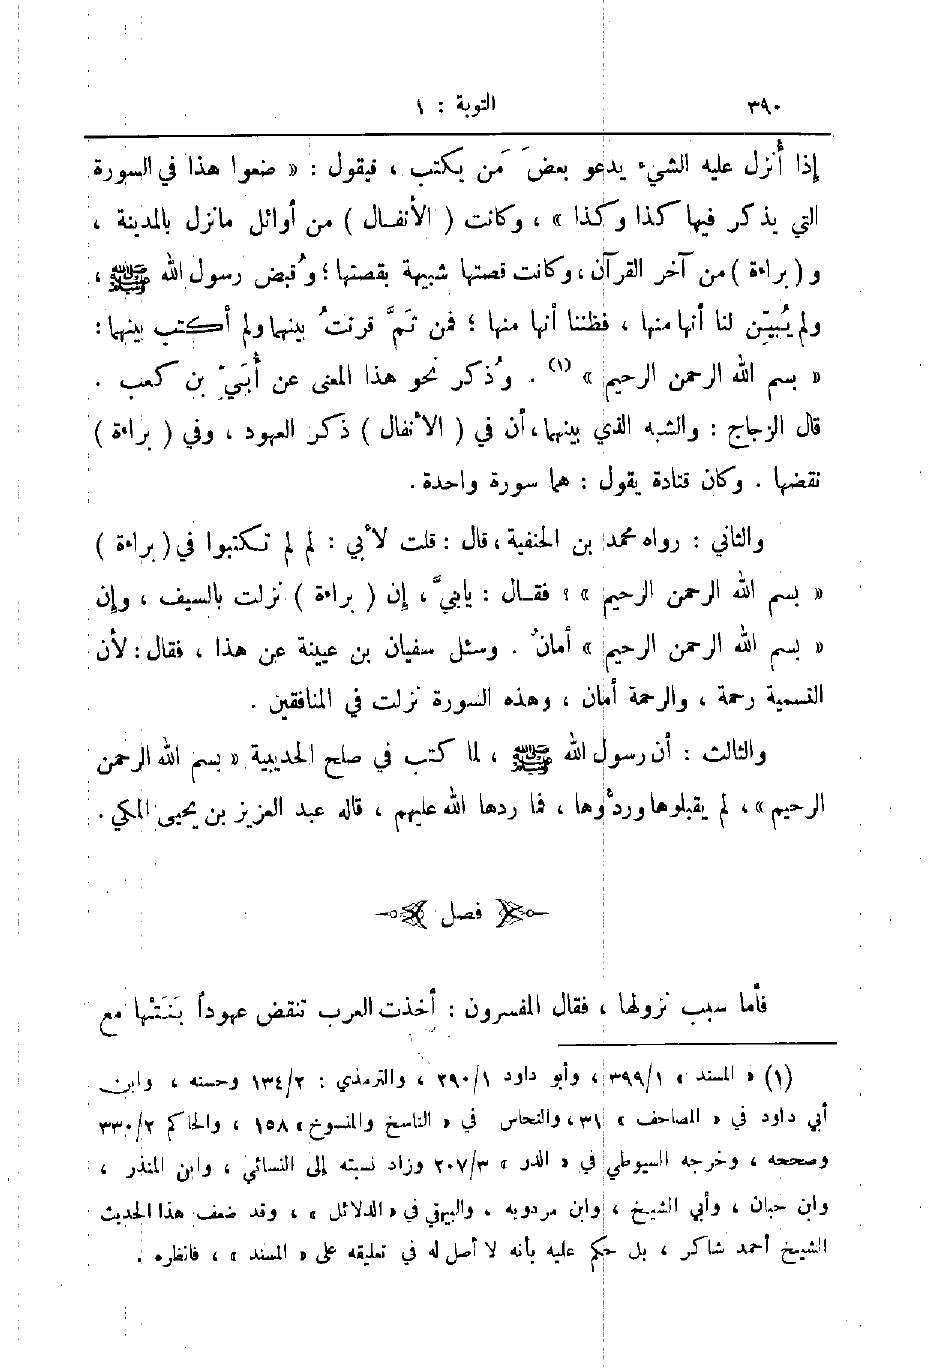 ٣٩٠ التوبة : ١
إذا أُنزل عليه الشيء يدعو بعضَ مَن يكتب ، فيقول : « ضعوا هذا في السورة
التي يذكر فيها كذا وكذا » ، وكانت ( الأنفـال ) من أوائل مانزل بالمدينة ،
و ( براءة ) من آخر القرآن ، وكانت قصتها شبيهة بقصتها ؛ وقُبض رسول الله ﷺ ،
ولم يُبيّن لنا أنها منها ، فظننا أنها منها ؛ فمن ثَمَّ قرنتُ بينهما ولم أكتب بينهما :
« بسم الله الرحمن الرحيم » (١) . وذُكر نحو هذا المعنى عن أُبَيّ بن كعب .
قال الزجاج : والشبه الذي بينهما ، أن في ( الأنفال ) ذكر العهود ، وفي ( براءة )
نقضها . وكان قتادة يقول : هما سورة واحدة .
والثاني : رواه محمد بن الحنفية ، قال : قلت لأبي : لم لم تكتبوا في ( براءة )
« بسم الله الرحمن الرحيم » ؟ فقـال : يابنيَّ ، إن ( براءة ) نزلت بالسيف ، وإن
« بسم الله الرحمن الرحيم » أمانٌ . وسئل سفيان بن عيينة عن هذا ، فقال : لأن
التسمية رحمة ، والرحمة أمان ، وهذه السورة نزلت في المنافقين .
والثالث : أن رسول الله ﷺ ، لما كتب في صلح الحديبية « بسم الله الرحمن
الرحيم » ، لم يقبلوها وردُّوها ، فما ردها الله عليهم ، قاله عبد العزيز بن يحيى المكي .
فصل
فأما سبب نزولها ، فقال المفسرون : أخذت العرب تنقض عهوداً بَنَتْها مع
(١) « المسند » ٣٩٩/١ ، وأبو داود ٢٩٠/١ ، والترمذي : ١٣٤/٢ وحسنه ، وابن
أبي داود في « المصاحف » ٣١ ، والنحاس في « الناسخ والمنسوخ » ١٥٨ ، والحاكم ٣٣٠/٢
وصححه ، وخرجه السيوطي في « الدر » ٢٠٧/٣ وزاد نسبته إلى النسائي ، وابن المنذر ،
وابن حبان ، وأبي الشيخ ، وابن مردويه ، والبيهقي في « الدلائل » ، وقد ضعف هذا الحديث
الشيخ أحمد شاكر ، بل حكم عليه بأنه لا أصل له في تعليقه على « المسند » ، فانظره .